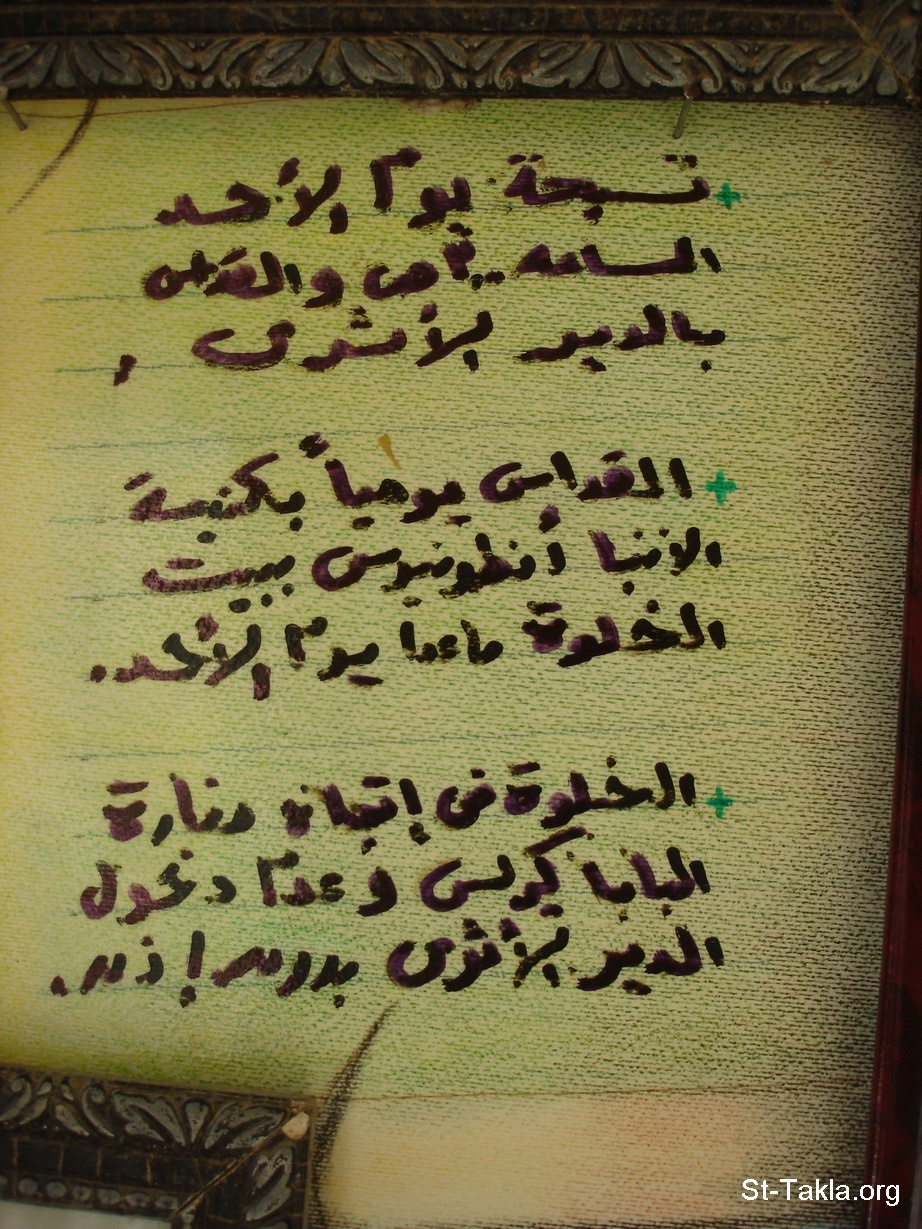 + تسبحة يوم الأحد
الساعه ٣ص والقداس
بالدير الأثرى ,
+ القداس يومياً بكنيسة
الأنبا أنطونيوس ببيت
الخلوة ماعدا يوم الأحد.
+ الخلوة فى إتجاه منارة
البابا كيرلس وعدم دخول
الدير الأثرى بدون إذن.
St-Takla.org